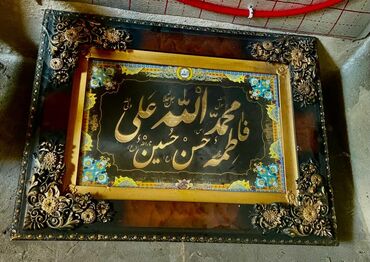 محمد الله علی
فاطمه حسن حسین